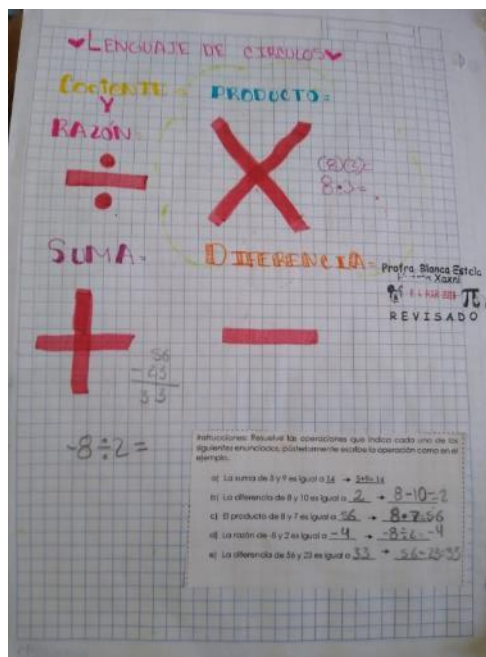 LENGUAJE DE CIRCULOS
COCIENTE =
Y
RAZÓN =
PRODUCTO =
÷
X
(8)(3)=
8•3=
SUMA =
DIFERENCIA =
Profra. Blanca Estela
Xaxni
π
REVISADO
+
−
56
- 23
33
-8÷2=
Instrucciones: Resuelve las operaciones que indica cada uno de los
siguientes enunciados, posteriormente escribe la operación como en el
ejemplo.
a) La suma de 5 y 9 es igual a 14 → 5+9=14
b) La diferencia de 8 y 10 es igual a 2 → 8-10=2
c) El producto de 8 y 7 es igual a 56 → 8•7=56
d) La razón de -8 y 2 es igual a -4 → -8÷2=-4
e) La diferencia de 56 y 23 es igual a 33 → 56-23=33